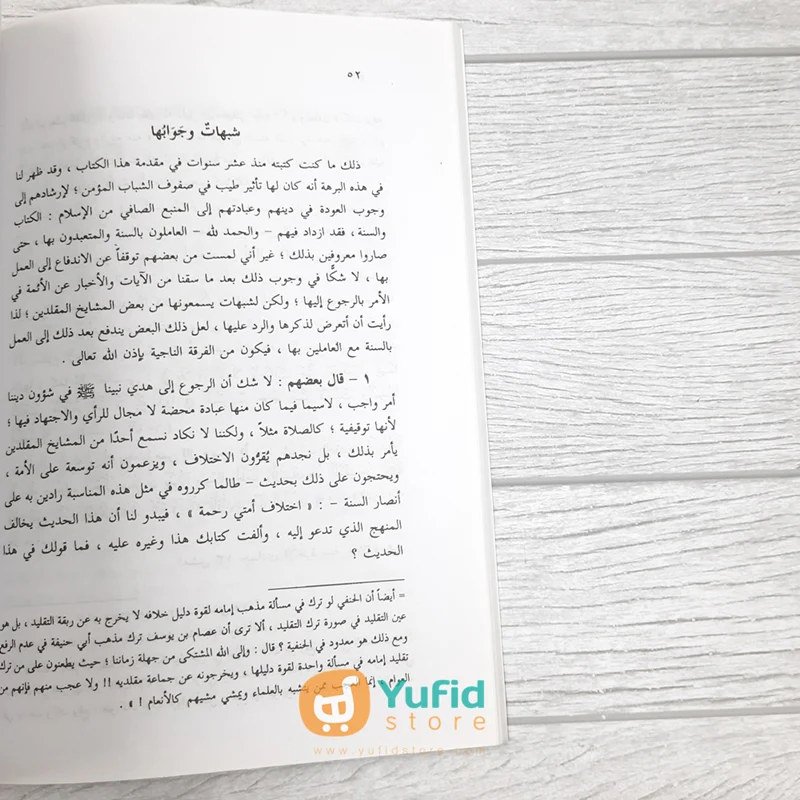 ٥٢
شبهاتٌ وجَوَابُها
ذلك ما كنت كتبته منذ عشر سنوات في مقدمة هذا الكتاب ، وقد ظهر لنا
في هذه البرهة أنه كان لها تأثير طيب في صفوف الشباب المؤمن ؛ لإرشادهم إلى
وجوب العودة في دينهم وعبادتهم إلى المنبع الصافي من الإسلام : الكتاب
والسنة ، فقد ازداد فيهم – والحمد لله – العاملون بالسنة والمتعبدون بها ، حتى
صاروا معروفين بذلك ؛ غير أني لمست من بعضهم توقفاً عن الاندفاع إلى العمل
بها ، لا شكًّا في وجوب ذلك بعد ما سقنا من الآيات والأخبار عن الأئمة في
الأمر بالرجوع إليها ؛ ولكن لشبهات يسمعونها من بعض المشايخ المقلدين ؛ لذا
رأيت أن أتعرض لذكرها والرد عليها ، لعل ذلك البعض يندفع بعد ذلك إلى العمل
بالسنة مع العاملين بها ، فيكون من الفرقة الناجية بإذن الله تعالى .
١ – قال بعضهم : لا شك أن الرجوع إلى هدي نبينا ﷺ في شؤون ديننا
أمر واجب ، لاسيما فيما كان منها عبادة محضة لا مجال للرأي والاجتهاد فيها ؛
لأنها توقيفية ؛ كالصلاة مثلاً ، ولكننا لا نكاد نسمع أحدًا من المشايخ المقلدين
يأمر بذلك ، بل نجدهم يُقرُّون الاختلاف ، ويزعمون أنه توسعة على الأمة ،
ويحتجون على ذلك بحديث – طالما كرروه في مثل هذه المناسبة رادين به على
أنصار السنة – : « اختلاف أمتي رحمة » ، فيبدو لنا أن هذا الحديث يخالف
المنهج الذي تدعو إليه ، وألفت كتابك هذا وغيره عليه ، فما قولك في هذا
الحديث ؟
= أيضاً أن الحنفي لو ترك في مسألة مذهب إمامه لقوة دليل خلافه لا يخرج به عن ربقة التقليد ، بل هو
عين التقليد في صورة ترك التقليد ، ألا ترى أن عصام بن يوسف ترك مذهب أبي حنيفة في عدم الرفع
ومع ذلك هو معدود في الحنفية ؟ قال : وإلى الله المشتكى من جهلة زماننا ؛ حيث يطعنون على من ترك
تقليد إمامه في مسألة واحدة لقوة دليلها ، ويخرجونه عن جماعة مقلديه !! ولا عجب منهم فإنهم من
العوام ، إنما ممن يتشبه بالعلماء ويمشي مشيهم كالأنعام ! » .
Yufid
store
www.yufidstore.com